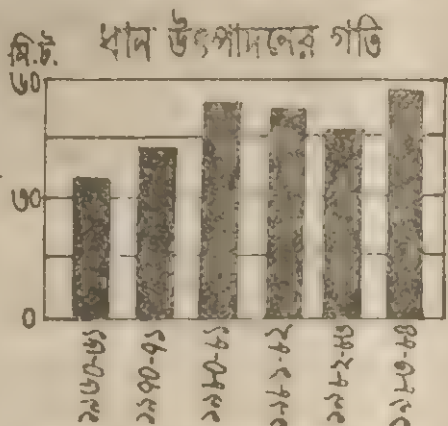 ধান উৎপাদনের গতি
মি.ট.
৬০
৩০
০
১৯৬০-৬১
১৯৭০-৭১
১৯৮০-৮১
১৯৮১-৮২
১৯৮২-৮৩
১৯৮৩-৮৪